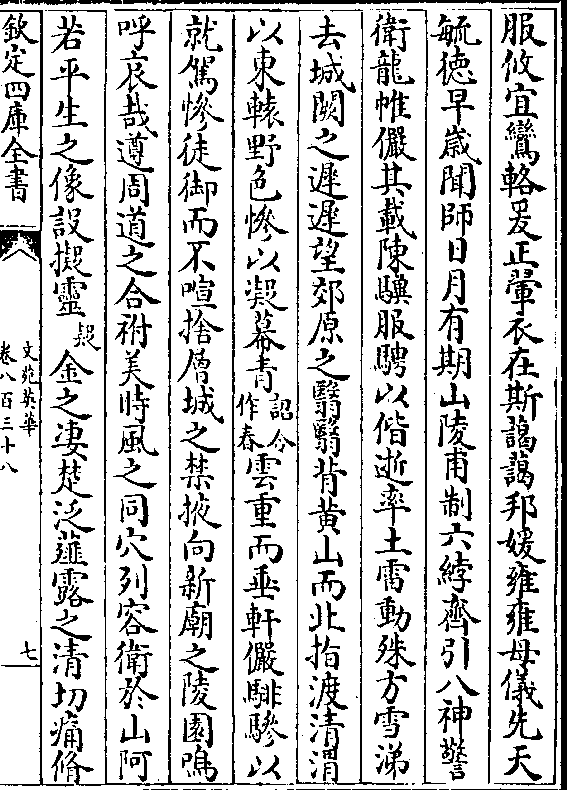 服攸宜鸞輅爰正翬衣在斯藹藹邦媛雍雍母儀先天
毓德早歲聞師日月有期山陵甫制六綍齊引八神警
衛龍帷儼其載陳驥服騁以偕逝率土雷動殊方雪涕
去城闕之遲遲望郊原之翳翳背黄山而北指渡清渭
以東轅野色慘以凝暮青詔令作春雲重而垂軒儼騑驂以
就駕慘徒御而不喧捨層城之禁掖向新廟之陵園嗚
呼哀哉遵周道之合祔美時風之同穴列容衛於山阿
若平生之像設擬靈疑金之凄楚泛薤露之清切痛脩
欽定四庫全書
文苑英華
卷八百三十八
七